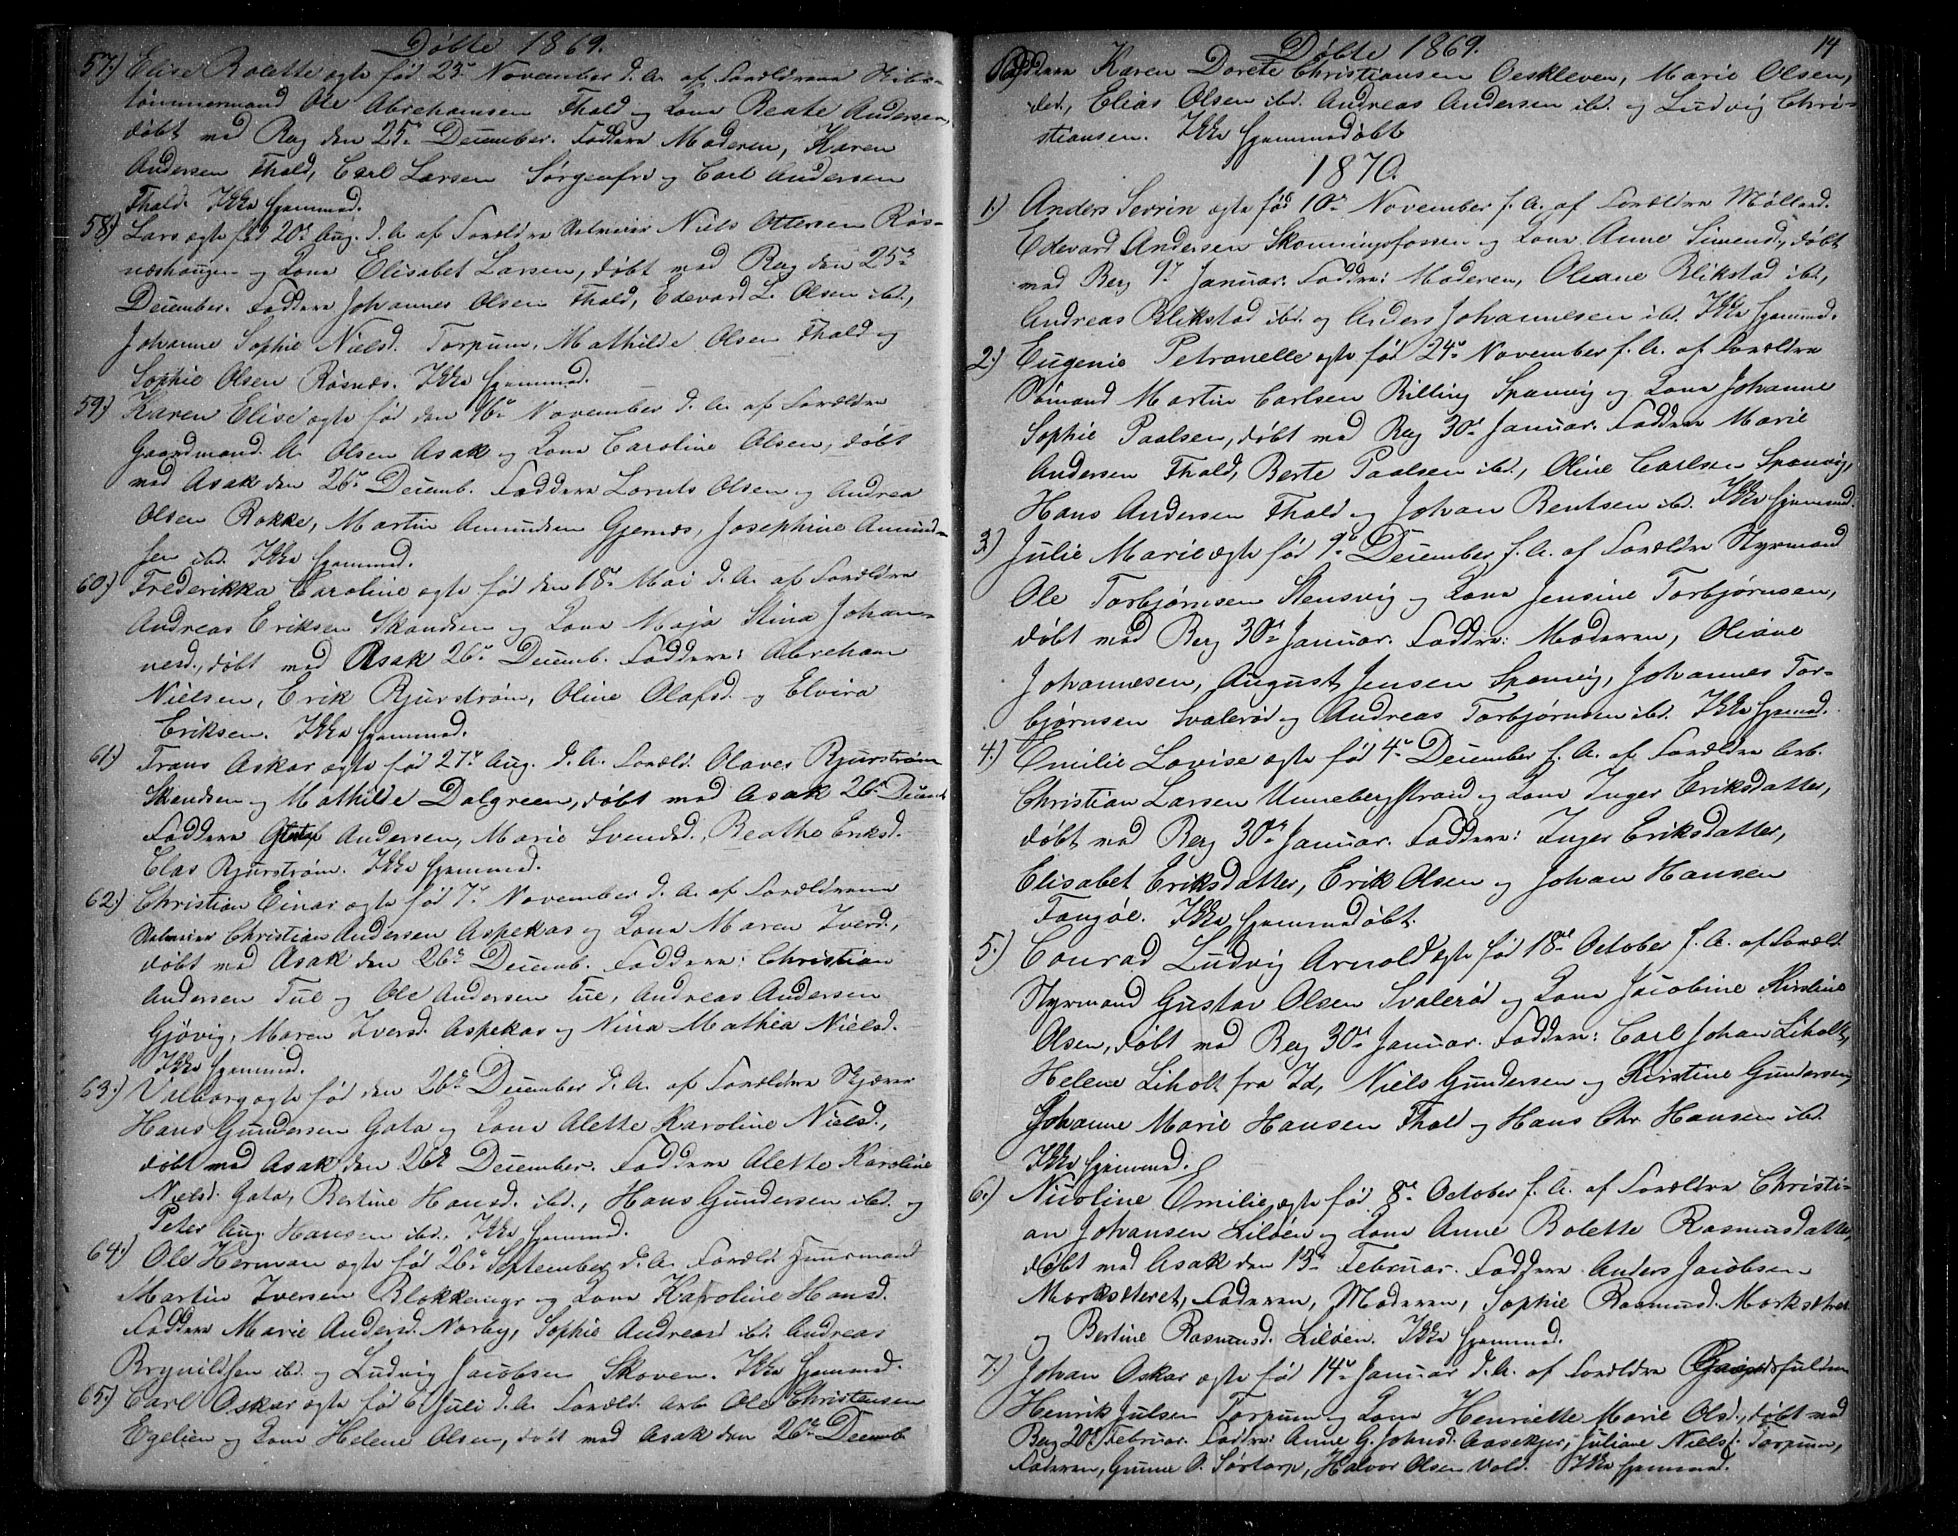 Døbte 1869.
57.) Elise Bolette ægte fød 25de November d. A. af Forældrene Skibs-
tømmermand Ole Abrahamsen Thold og Kone Beate Andersen,
døbt ved Berg den 25de December. Faddere Moderen, Karen
Andersen Thold, Carl Larsen Sørgenfri og Carl Andersen
Thold. Ikke hjemmed.
58.) Lars ægte fød 20de Aug. d. A. af Forældre Selveier Niels Ottersen Røs-
næshaugen og Kone Elisabet Larsen, døbt ved Berg den 25de
December. Faddere Johannes Olsen Thold, Edevard L. Olsen ibd.,
Johanne Sophie Nielsd. Torpum, Mathilde Olsen Thold og
Sophie Olsen Røsnæs. Ikke hjemmed.
59.) Karen Elise ægte fød den 16de November d. A. af Forældre
Gaardmand A. Olsen Asak og Kone Caroline Olsen, døbt
ved Asak den 26de Decemb. Faddere Lornts Olsen og Andrea
Olsen Rokke, Martin Amundsen Gjernæs, Josephine Amund-
sen ibd. Ikke hjemmed.
60.) Frederikka Caroline ægte fød den 18de Mai d. A. af Forældre
Andreas Eriksen Skandsen og Kone Maja Stina Johan-
nesd., døbt ved Asak 26de Decemb. Faddere: Abraham
Nielsen, Erik Bjurstrøm, Oline Olafsd. og Elvira
Eriksen. Ikke hjemmed.
61.) Frans Askar ægte fød 27de Aug. d. A. Foræld. Olaves Bjurstrøm
Skandsen og Mathilde Dalgreen, døbt ved Asak 26de Decemb
Faddere Gustaf Andersen, Marie Svendsd., Beathe Eriksd.
Clas Bjurstrøm. Ikke hjemmed.
62.) Christian Einar ægte fød 7de November d. A. af Forældrene
Selveier Christian Andersen Aspekas og Kone Maren Iversd.,
døbt ved Asak den 26de Decemb. Faddere: Christian
Andersen Tue og Ole Andersen Tue, Andreas Andersen
Gjøvig, Maren Iversd. Aspekas og Nina Mathea Nielsd.
Ikke hjemmed.
63.) Valborg ægte fød den 26de December d. A. af Forældre
Hans Gundersen Gata og Kone Alette Karoline Nielsd.,
døbt ved Asak den 26de December. Faddere Alette Karoline
Nielsd. Gata, Bertine Hansd. ibd., Hans Gundersen ibd. og
Peter Aug. Hansen ibd. Ikke hjemmed.
64.) Ole Herman ægte fød 26de September d. A. Foræld. Huusmand
Martin Iversen Blokkemyr og Kone Karoline Hansd.
Faddere Marie Andersd. Nørby, Sophie Andreasd ibd. Andreas
Brynildsen ibd. og Ludvig Jacobsen Skoven. Ikke hjemmed.
65.) Carl Oskar ægte fød 6 Juli d. A. Foræld. Arb. Ole Christensen
Egelien og Kone Helene Olsen, døbt ved Asak den 26de Decemb
Døbte 1869.
14
Faddere Karen Dorete Christiansen Oeskleven, Marie Olsen,
ibd., Elias Olsen ibd. Andreas Andersen ibd. og Ludvig Chri-
stiansen. Ikke hjemmedøbt
1870.
1.) Anders Severin ægte fød 10de November f. A. af Forældre Møllard.
Edevard Andersen Skonningsfossen og Kone Anne Simensd., døbt
ved Berg 9de Januar. Faddere: Moderen, Oleane Blikstad ibd.,
Andreas Blikstad ibd. og Anders Johannesen ibd. Ikke hjemmed.
2.) Eugenie Petranelle ægte fød 24de November f. A. af Forældre
Sømand Martin Carlsen Billing Sponvig og Kone Johanne
Sophie Paalsen, døbt ved Berg 30de Januar. Faddere Marie
Andersen Thold, Berte Paalsen ibd., Oline Carlsen Sponvig,
Hans Andersen Thold og Johan Bentsen ibd. Ikke hjemmed.
3.) Julie Marie ægte fød 9de December f. A. af Forældre Styrmand
Ole Torbjørnsen Stensvig og Kone Jensine Torbjørnsen,
døbt ved Berg 30de Januar. Faddere: Moderen, Oliane
Johannesen, August Jensen Sponvig, Johannes Tor-
bjørnsen Svalerød og Andreas Torbjørnsen ibd. Ikke hjemmed.
4.) Emilie Lovise ægte fød 4de December f. A. af Forældre Arb.
Christian Larsen Unnebergstrand og Kone Inger Eriksdatter,
døbt ved Berg 30de Januar. Faddere: Inger Eriksdatter,
Elisabet Eriksdatter, Erik Olsen og Johan Hansen
Tangøe. Ikke hjemmedøbt.
5.) Conrad Ludvig Arnold ægte fød 18de October f. A. af Foræld.
Styrmand Gustav Olsen Svalerød og Kone Jacobine Kirstine
Olsen, døbt ved Berg 30de Januar. Faddere: Carl Johan Liholt,
Helene Liholt fra Id, Niels Gundersen og Kirstine Gundersen,
Johanne Marie Hansen Thold og Hans Chr. Hansen ibd.
Ikke hjemmed.
6.) Nicoline Emilie ægte fød 8de October f. A. af Forældre Christi-
an Johansen Liløen og Kone Anne Bolette Rasmusdatter,
døbt ved Asak den 13de Februar. Faddere Anders Jacobsen
Morksteret, Faderen, Moderen, Sophie Rasmusd. Morksteret
og Bertine Rasmusd. Liløen. Ikke hjemmed.
7.) Johan Oskar ægte fød 14de Januar d. A. af Forældre
Henrik Julsen Torpum og Kone Henriette Marie Olsd., døbt ved
Berg 20de Februar. Faddere: Anne G. Johnsd. Aasekjær, Juliane Nielsd. Torpum,
Faderen, Gunne A. Sørtorp, Halvor Olsen Vold. Ikke hjemmed.